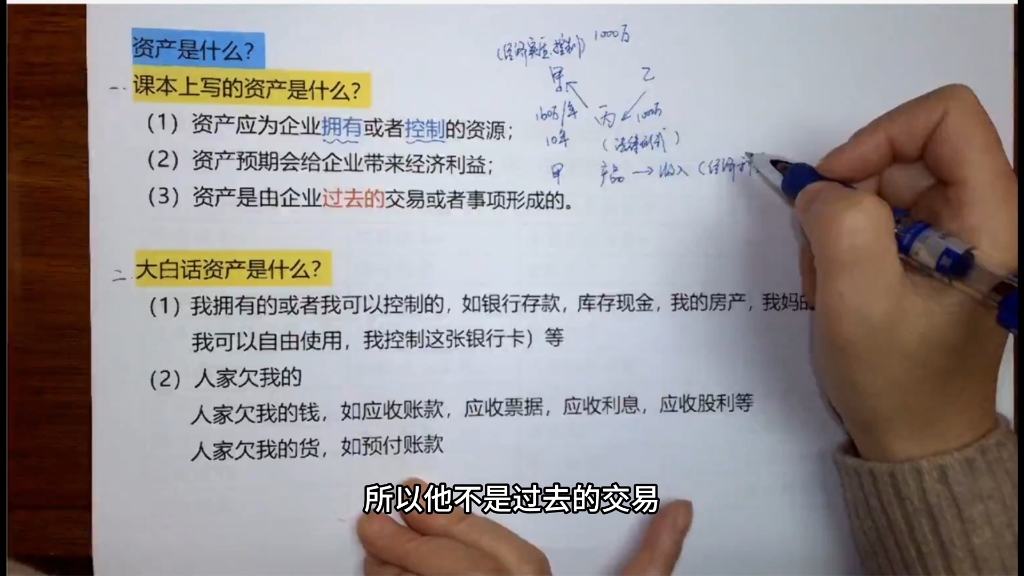 资产是什么?
(经济实质,控制) 1000万
一. 课本上写的资产是什么?
甲 乙
(1)资产应为企业拥有或者控制的资源;
100万/年 丙 1000万
10年 (法律形式)
(2)资产预期会给企业带来经济利益;
甲 产品→收入(经济利
(3)资产是由企业过去的交易或者事项形成的。
二. 大白话资产是什么?
(1)我拥有的或者我可以控制的,如银行存款,库存现金,我的房产,我妈的
我可以自由使用,我控制这张银行卡)等
(2)人家欠我的
人家欠我的钱,如应收账款,应收票据,应收利息,应收股利等
人家欠我的货,如预付账款
所以他不是过去的交易